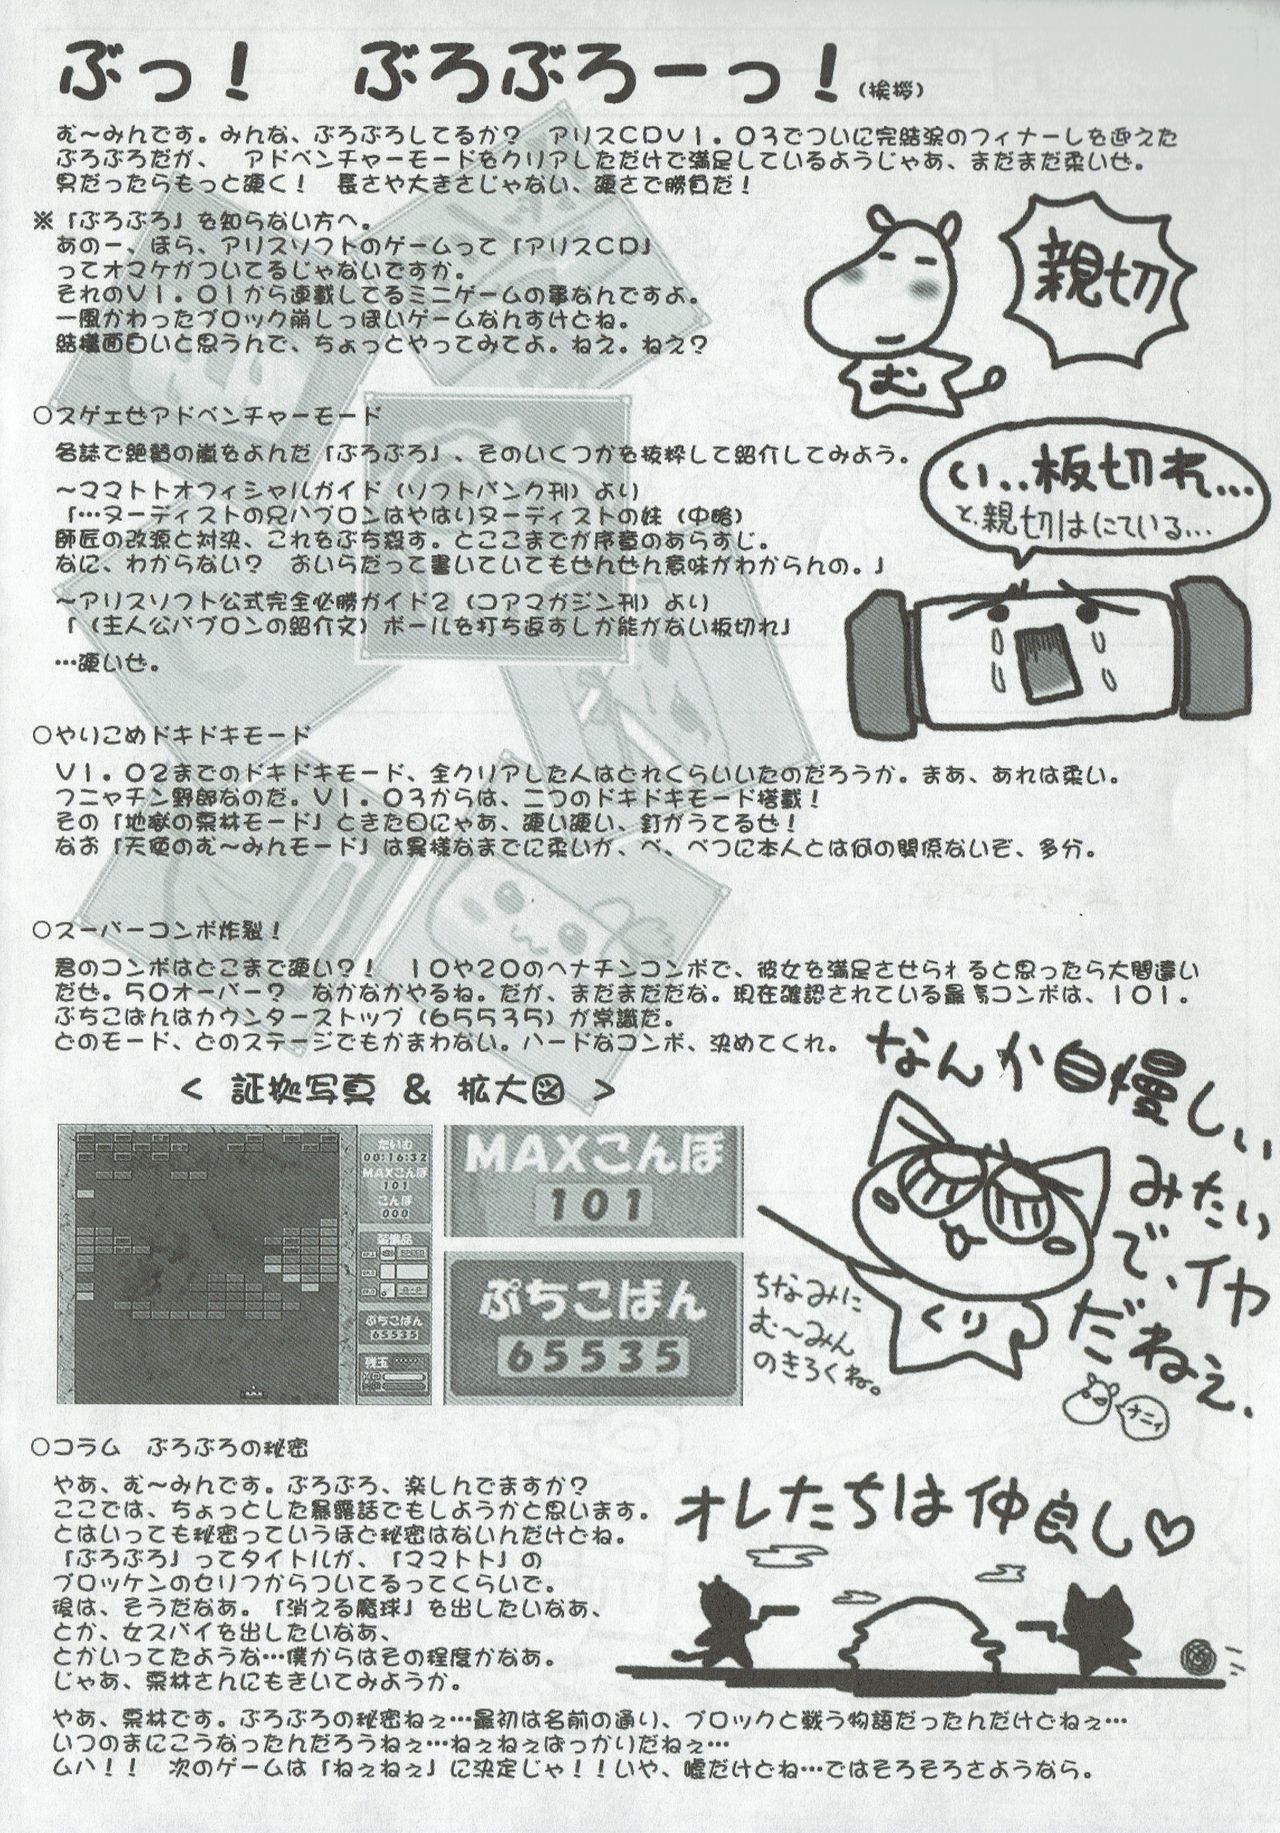 ぶっ！　ぶろぶろーっ！（挨拶）
む～みんです。みんな、ぶろぶろしてるか？　アリスＣＤＶ１．０３でついに完結涙のフィナーレを迎えた
ぶろぶろだが、　アドベンチャーモードをクリアしただけで満足しているようじゃあ、まだまだ柔いぜ。
男だったらもっと硬く！　長さや大きさじゃない、硬さで勝負だ！
※「ぶろぶろ」を知らない方へ。
あのー、ほら、アリスソフトのゲームって「アリスＣＤ」
ってオマケがついてるじゃないですか。
それのＶ１．０１から連載してるミニゲームの事なんですよ。
一風かわったブロック崩しっぽいゲームなんすけどね。
結構面白いと思うんで、ちょっとやってみてよ。ねえ。ねえ？
親切
む
○スゲェぜアドベンチャーモード
各誌で絶賛の嵐をよんだ「ぶろぶろ」、そのいくつかを抜粋して紹介してみよう。
～ママトトオフィシャルガイド（ソフトバンク刊）より
「…ヌーディストの兄ハブロンはやはりヌーディストの妹（中略）
師匠の改源と対決、これをぶち殺す。とここまでが序章のあらすじ。
なに、わからない？　おいらだって書いていてもぜんぜん意味がわからんの。」
～アリスソフト公式完全必勝ガイド２（コアマガジン刊）より
「（主人公バブロンの紹介文）ボールを打ち返すしか能がない板切れ」
…硬いぜ。
い..板切れ...
と、親切はにている...
○やりこめドキドキモード
Ｖ１．０２までのドキドキモード、全クリアした人はどれくらいいたのだろうか。まあ、あれは柔い。
フニャチン野郎なのだ。Ｖ１．０３からは、二つのドキドキモード搭載！
その「地獄の栗林モード」ときた日にゃあ、硬い硬い、釘がうてるぜ！
なお「天使のむ～みんモード」は異様なまでに柔いが、べ、べつに本人とは何の関係ないぞ、多分。
○スーパーコンボ炸裂！
君のコンボはどこまで硬い？！　１０や２０のヘナチンコンボで、彼女を満足させられると思ったら大間違い
だぜ。５０オーバー？　なかなかやるね。だが、まだまだだな。現在確認されている最高コンボは、１０１．
ぷちこばんはカウンターストップ（６５５３５）が常識だ。
どのモード、どのステージでもかまわない。ハードなコンボ、決めてくれ。
＜ 証拠写真 ＆ 拡大図 ＞
たいむ
00:16:32
MAXこんぼ
101
こんぼ
000
装備品
SPEED
ぷちこばん
65535
残玉
MAXこんぼ
101
ぷちこばん
65535
なんか自慢しい
みたい
で、イヤ
だねぇ.
くり
ナニィ
ちなみに
む～みん
のきろくね。
○コラム　ぶろぶろの秘密
やあ、む～みんです。ぶろぶろ、楽しんでますか？
ここでは、ちょっとした暴露話でもしようかと思います。
とはいっても秘密っていうほど秘密はないんだけどね。
「ぶろぶろ」ってタイトルが、「ママトト」の
ブロッケンのセリフからついてるってくらいで。
後は、そうだなあ。「消える魔球」を出したいなあ、
とか、女スパイを出したいなあ、
とかいってたような…僕からはその程度かなあ。
じゃあ、栗林さんにもきいてみようか。
オレたちは仲良し♡
やあ、栗林です。ぶろぶろの秘密ねぇ…最初は名前の通り、ブロックと戦う物語だったんだけどねぇ…
いつのまにこうなったんだろうねぇ…ねぇねぇばっかりだねぇ…
ムハ！！　次のゲームは「ねぇねぇ」に決定じゃ！！いや、嘘だけどね…ではそろそろさようなら。